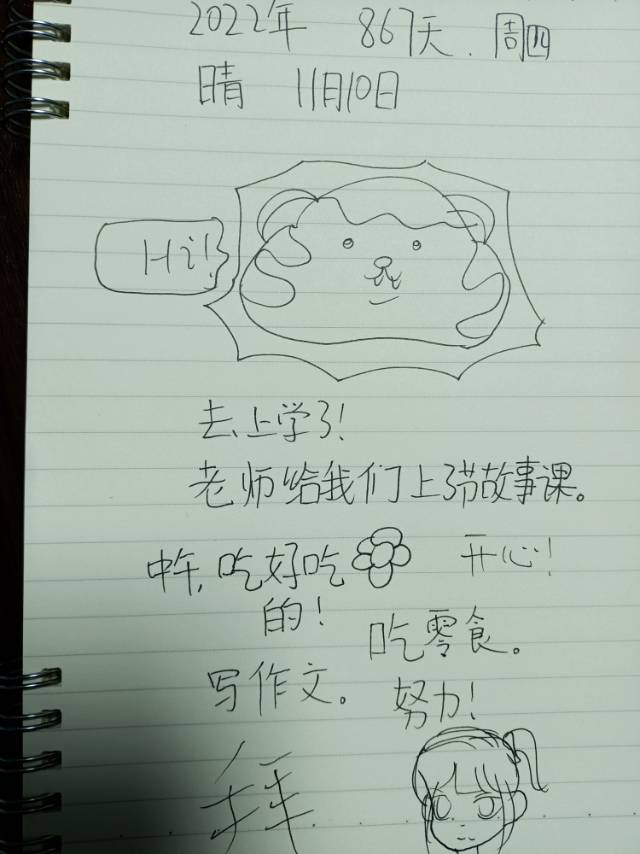 2022年 867天. 周四
晴 11月10日
Hi!
去上学了!
老师给我们上了节故事课。
中午,吃好吃的! 开心!
吃零食。
写作文。 努力!
拜